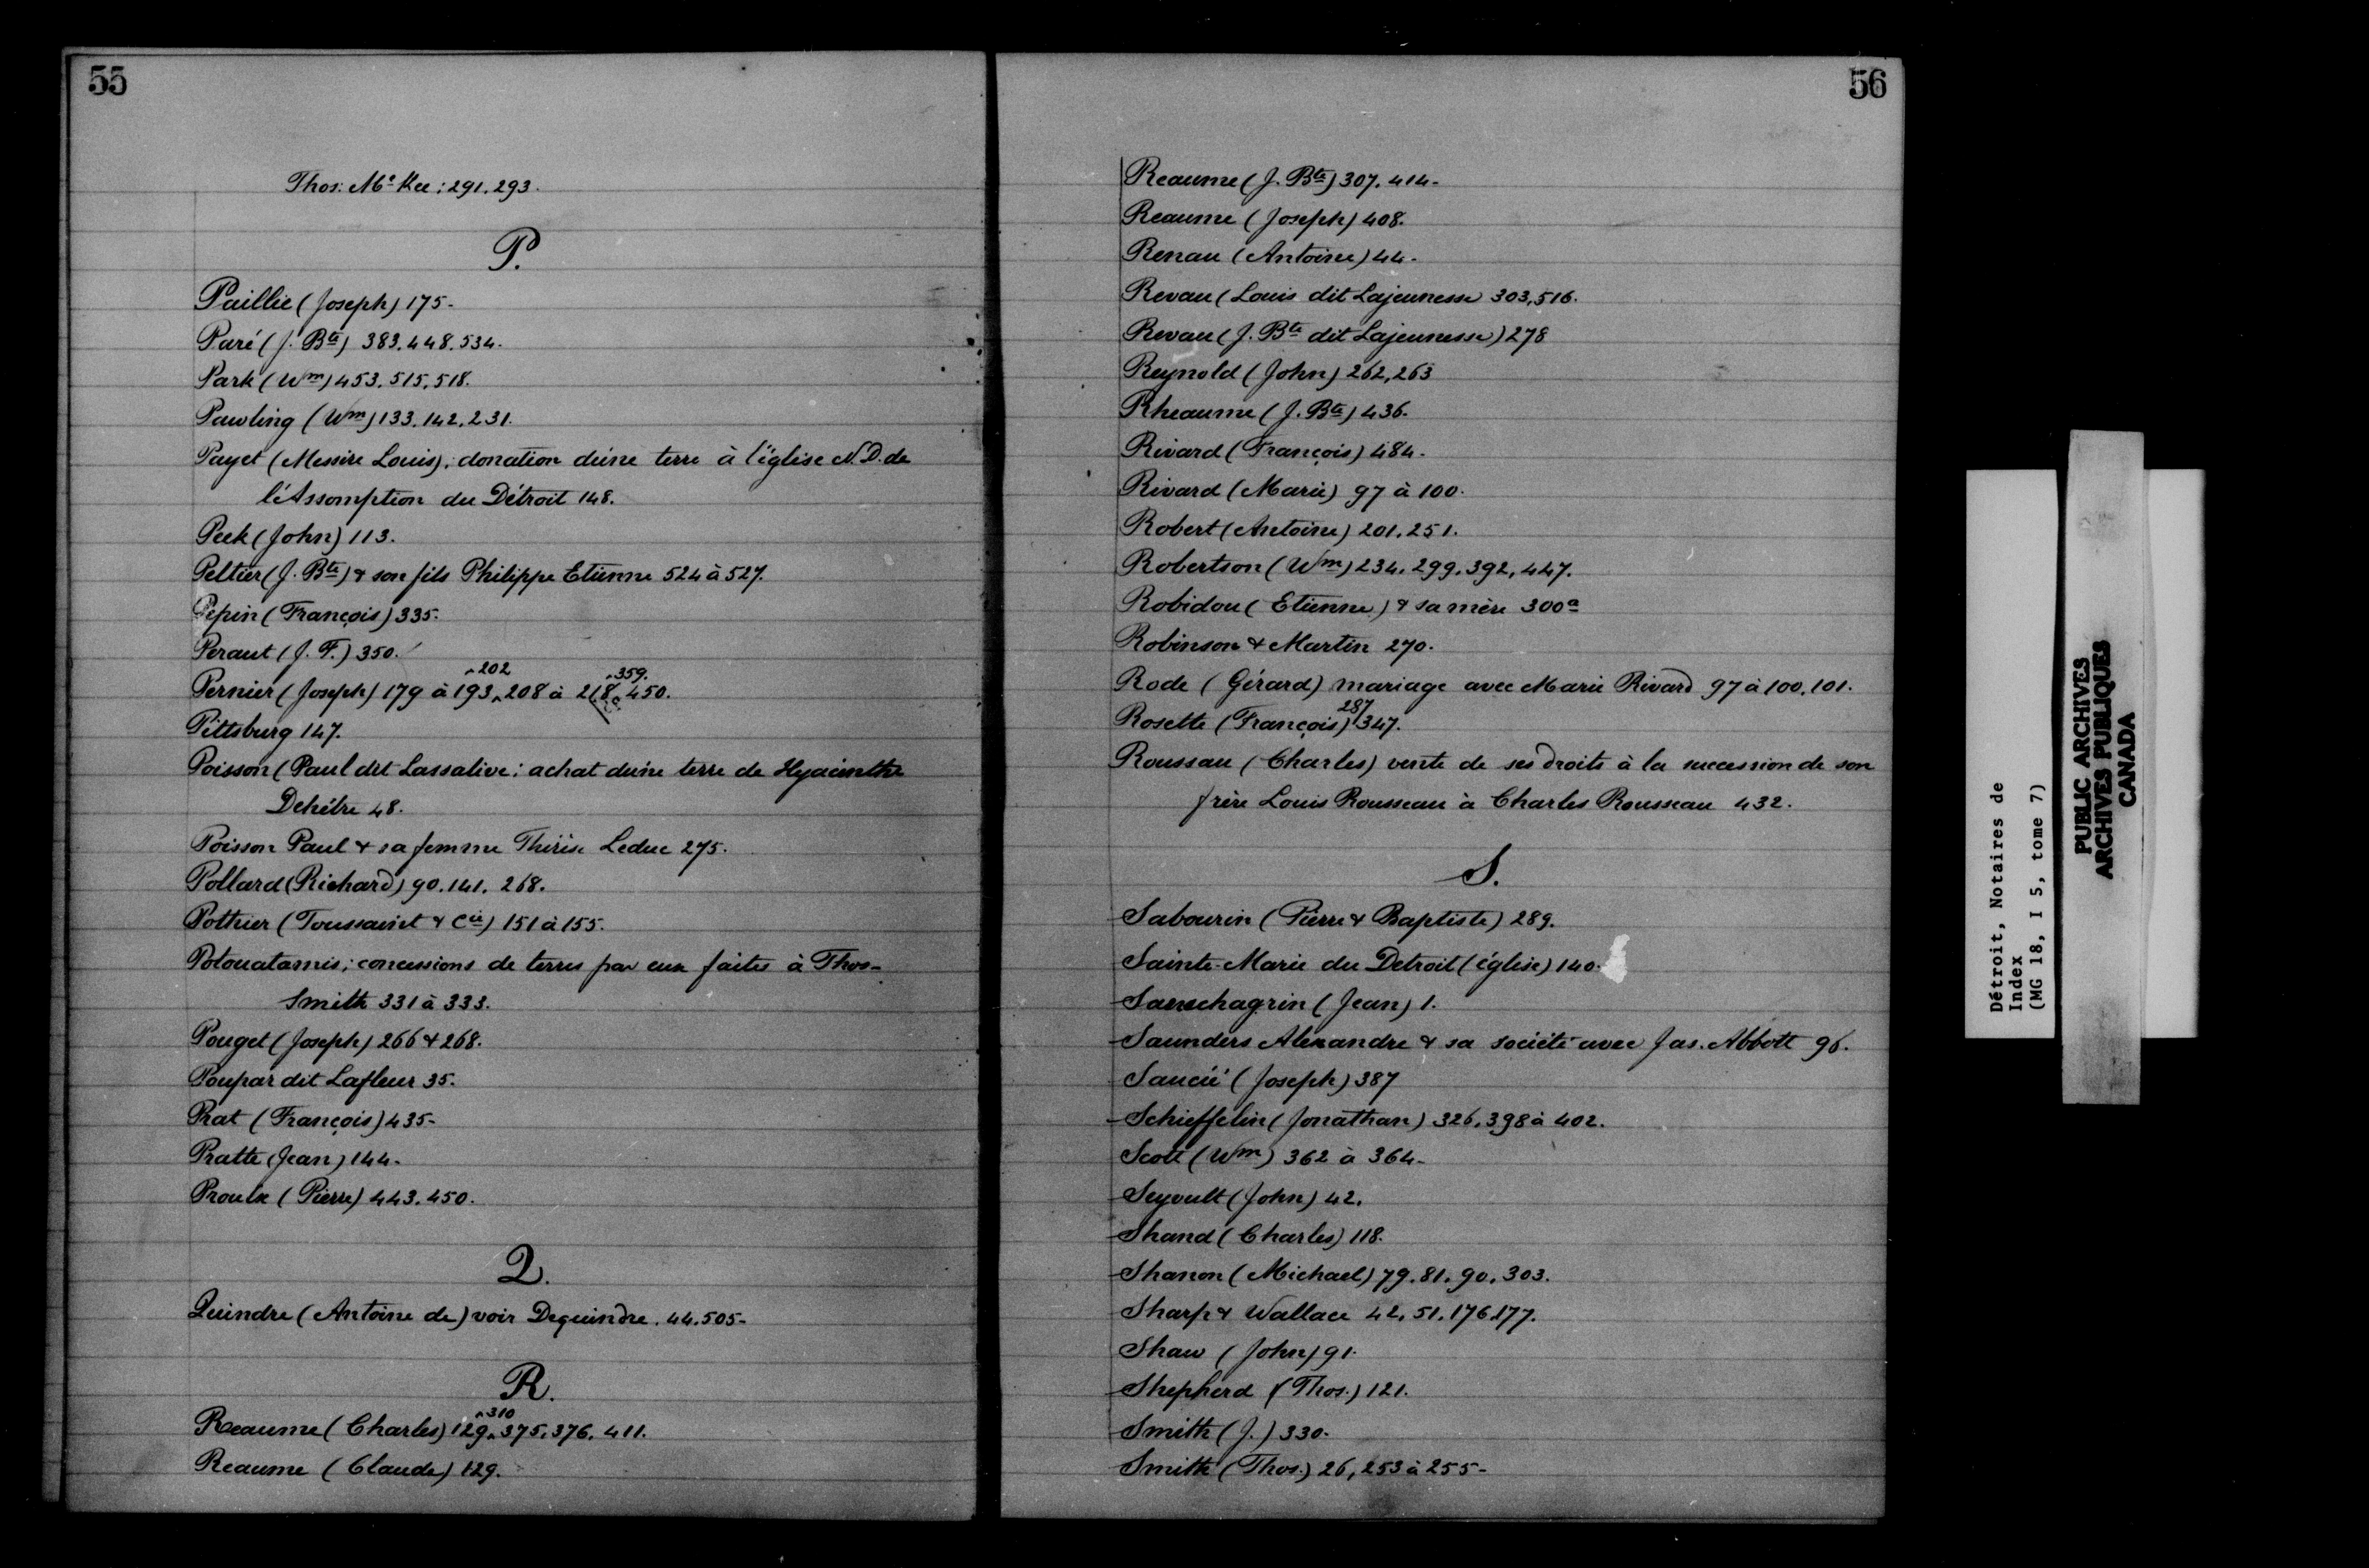 55
Thos: Mc Kee: 291. 293.
P.
Paillie (Joseph) 175-
Paré (J. Bte) 383. 448. 534.
Park (Wm) 453. 515. 518.
Pawling (Wm) 133. 142. 231.
Payet (Messire Louis); donation d'une terre à l'église N.D. de
l'Assomption du Détroit 148.
Peek (John) 113.
Peltier (J. Bte) & son fils Philippe Etienne 524 à 527.
Pepin (François) 335.
Peraut (J. F.) 350.
Pernier (Joseph) 179 à 193, 202 208 à 218, 359. 450.
Pittsburg 147.
Poisson (Paul dit Lassalive: achat d'une terre de Hyacinthe
Dehêtre 48.
Poisson Paul & sa femme Thérèse Leduc 275.
Pollard (Richard) 90. 141. 268.
Pothier (Toussaint & Cie) 151 à 155.
Potouatamis; concessions de terres par eux faites à Thos-
Smith 331 à 333.
Pouget (Joseph) 266 & 268.
Poupar dit Lafleur 35.
Prat (François) 435-
Pratte (Jean) 144-
Proulx (Pierre) 443. 450.
Q.
Quindre (Antoine de) voir Dequindre. 44. 505-
R.
Reaume (Charles) 129, 310 375. 376. 411.
Reaume (Claude) 129.
56
Reaume (J. Bte) 307. 414-
Reaume (Joseph) 408.
Renau (Antoine) 44-
Revau (Louis dit Lajeunesse 303, 516.
Revau (J. Bte dit Lajeunesse) 278
Reynold (John) 262, 263
Rheaume (J. Bte) 436.
Rivard (François) 484.
Rivard (Marie) 97 à 100.
Robert (Antoine) 201. 251.
Robertson (Wm) 234. 299. 392, 447.
Robidou (Etienne) & sa mère 300a
Robinson & Martin 270.
Rode (Gérard) mariage avec Marie Rivard 97 à 100, 101.
Rosette (François) 287 347.
Roussau (Charles) vente de ses droits à la succession de son
frère Louis Rousseau à Charles Rousseau 432.
S.
Sabourin (Pierre & Baptiste) 289.
Sainte-Marie du Detroit (église) 140.
Sanschagrin (Jean) 1.
Saunders Alexandre & sa société avec Jas. Abbott 96.
Saucié (Joseph) 387
Schieffelin (Jonathan) 326, 398 à 402.
Scott (Wm) 362 à 364-
Seyvult (John) 42.
Shand (Charles) 118.
Shanon (Michael) 79. 81. 90. 303.
Sharp & Wallace 42, 51. 176. 177.
Shaw (John) 91.
Shepherd (Thos.) 121.
Smith (J.) 330-
Smith (Thos.) 26, 253 à 255-
Détroit, Notaires de
Index
(MG 18, I 5, tome 7)
PUBLIC ARCHIVES
ARCHIVES PUBLIQUES
CANADA